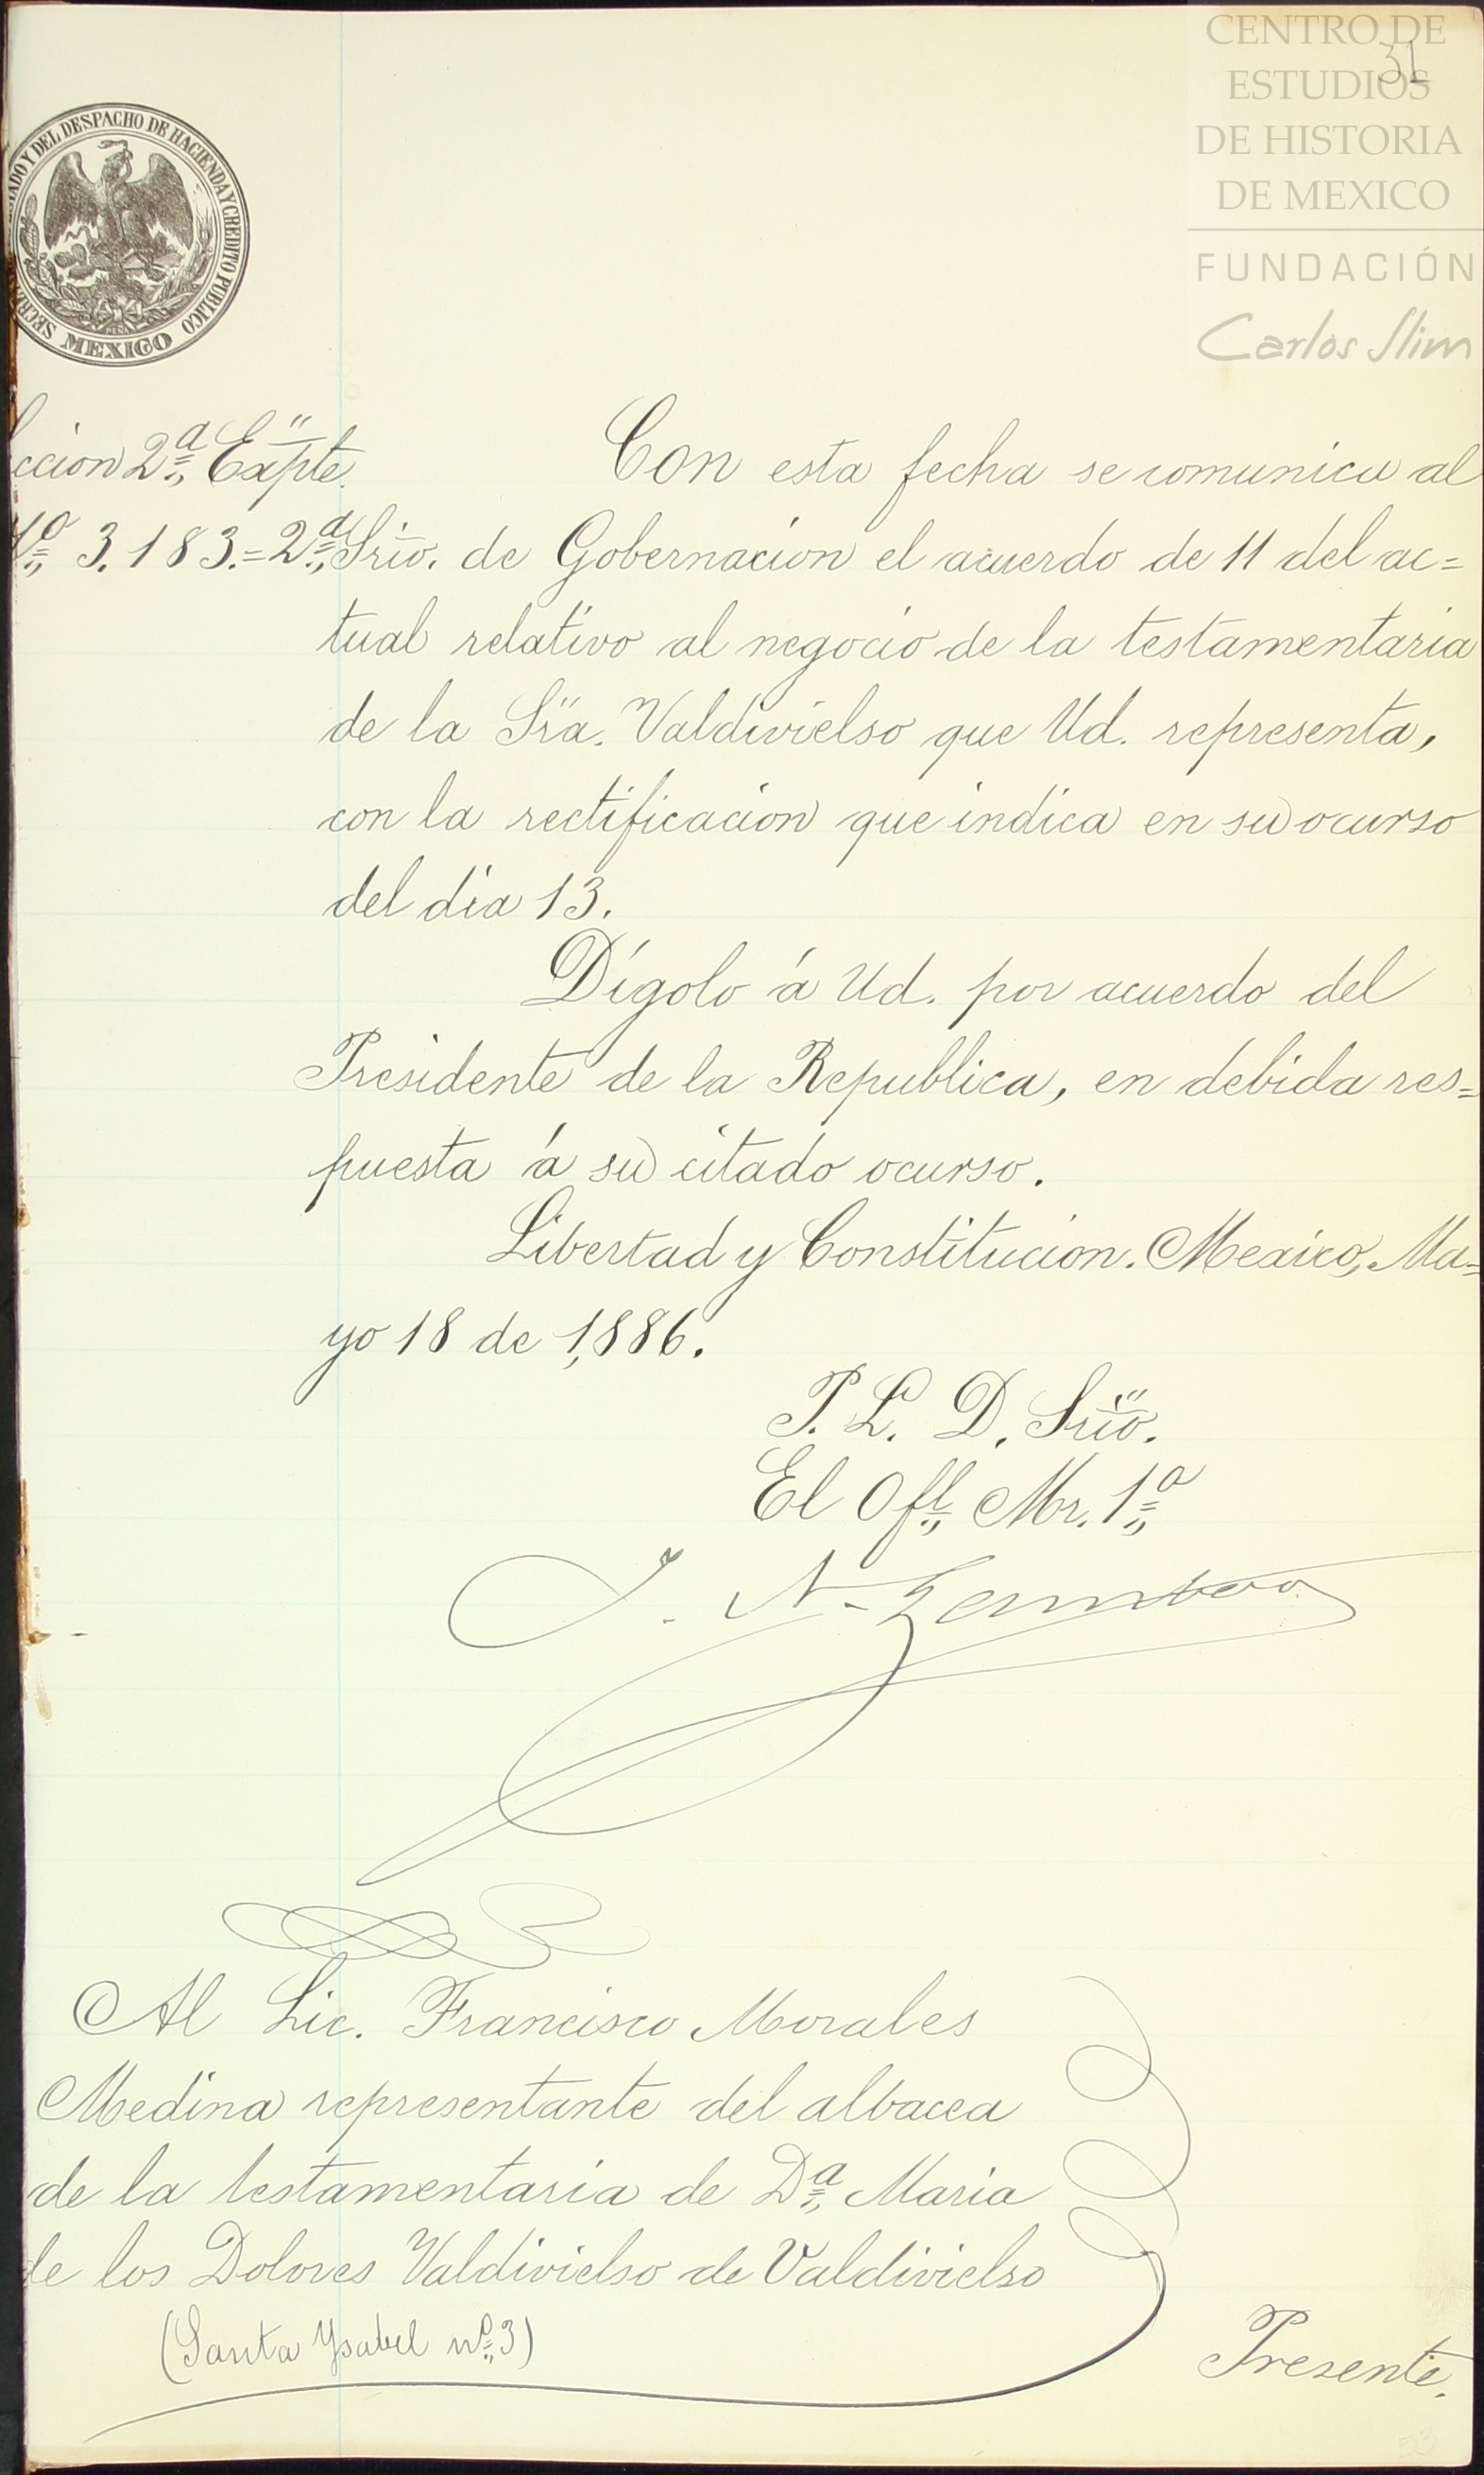 CENTRO DE
ESTUDIOS
DE HISTORIA
DE MEXICO
FUNDACIÓN
Carlos Slim
31
ESTADO Y DEL DESPACHO DE HACIENDA Y CREDITO PUBLICO
MEXICO
ccion 2ª Expte.
Nº 3.183.=2ª
Con esta fecha se comunica al
Srio. de Gobernacion el acuerdo de 11 del ac=
tual relativo al negocio de la testamentaria
de la Sra. Valdivielso que Ud. representa,
con la rectificacion que indica en su ocurso
del dia 13.
Dígolo á Ud. por acuerdo del
Presidente de la Republica, en debida res=
puesta á su citado ocurso.
Libertad y Constitucion. Mexico, Ma=
yo 18 de 1,886.
P. L. D. Srio.
El Ofl. Mr. 1º
J. N.
Al Lic. Francisco Morales
Medina representante del albacea
de la testamentaria de Dª Maria
de los Dolores Valdivielso de Valdivielso
(Santa Ysabel nº 3)
Presente.
53